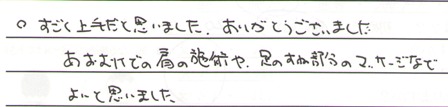 ○ すごく上手だと思いました. ありがとうございました
あおむけでの肩の施術や、足のすね部分のマッサージなど
よいと思いました.